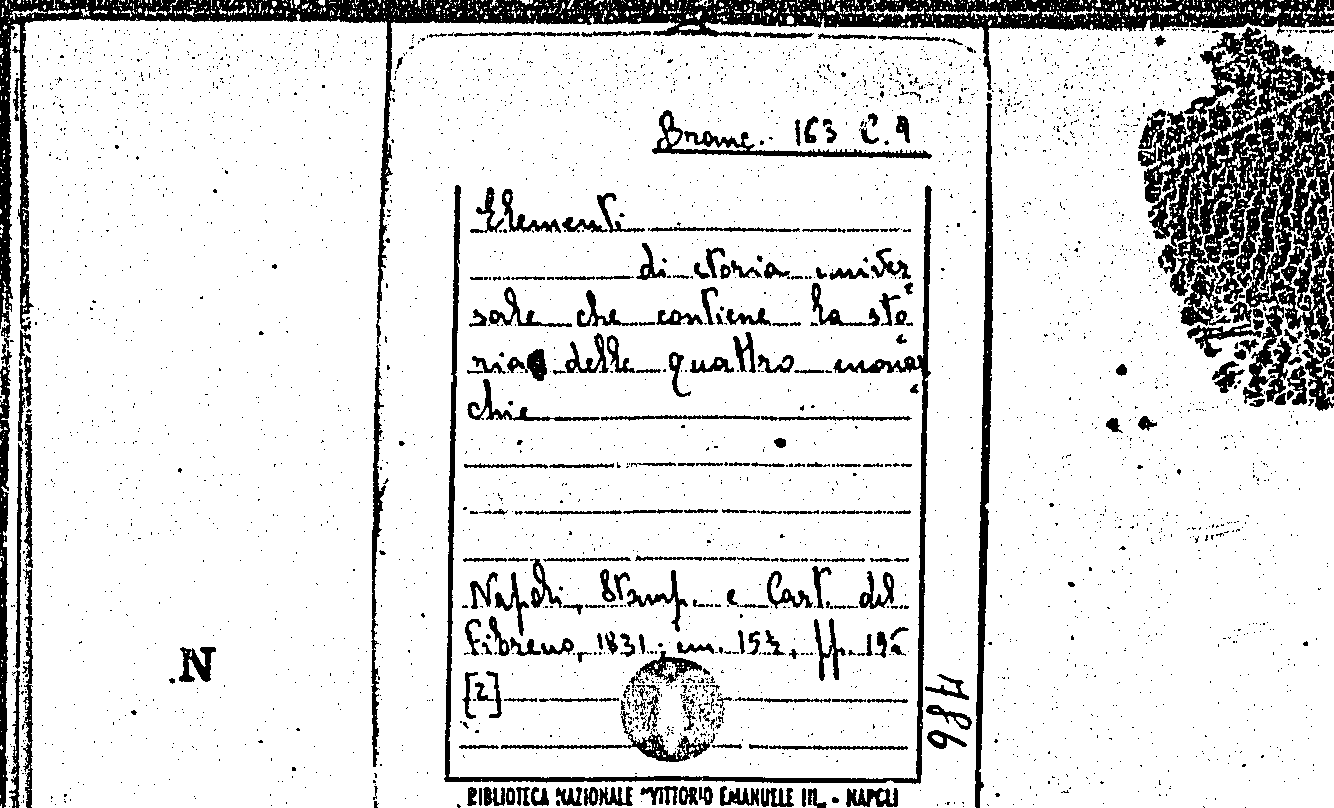 Branc. 163 C. 9
Elementi
di storia univer
sale che contiene la sto
ria delle quattro monar
chie
Napoli, Stamp. e Cart. del
Fibreno, 1831; cm. 15½, pp. 195
[2]
986
N
BIBLIOTECA NAZIONALE "VITTORIO EMANUELE III„ - NAPOLI